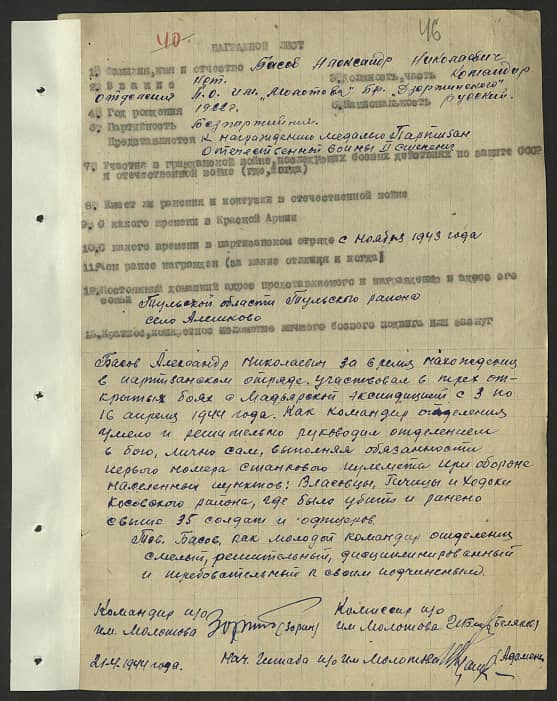 40.
46
НАГРАДНОЙ ЛИСТ
1) Фамилия, имя и отчество Басов Александр Николаевич
2) Звание Нет. 3. Должность, часть Командир
отделения П.О. им. "Молотова" Бр. "Дзержинского"
4) Год рождения 5. Национальность русский.
6) Партийность Безпартийн.
Представляется К награждению медалью Партизан
Отечественной войны II степени
7) Участие в гражданской войне, последующих боевых действиях по защите СССР
и отечественной войне (где, когда)
8. Имеет ли ранения и контузии в отечественной войне
9. С какого времени в Красной Армии
10. С какого времени в партизанском отряде с ноября 1943 года
11. Чем ранее награжден (за какие отличия и когда)
12. Постоянный домашний адрес представляемого к награждению и адрес его
семьи Тульской области Тульского района
село Алешково
13. Краткое, конкретное изложение личного боевого подвига или заслуг
Басов Александр Николаевич за время нахождения
в партизанском отряде участвовал в трех от-
крытых боях с Мадьярской экспидицией с 3 по
16 апреля 1944 года. Как командир отделения
умело и решительно руководил отделением
в бою, лично сам, выполняя обязанности
первого номера станкового пулемета при обороне
населенных пунктов: Власовцы, Гичицы и Ходоки
Косовского района, где было убито и ранено
свыше 35 солдат и офицеров.
Тов. Басов, как молодой командир отделения
смелый, решительный, дисциплинированный
и требовательный к своим подчиненным.
Командир п/о Комиссар п/о
им. Молотова (Зорин) им Молотова (Беляков)
21-4-1944 года. Нач. Штаба п/о им Молотова (Адаменя